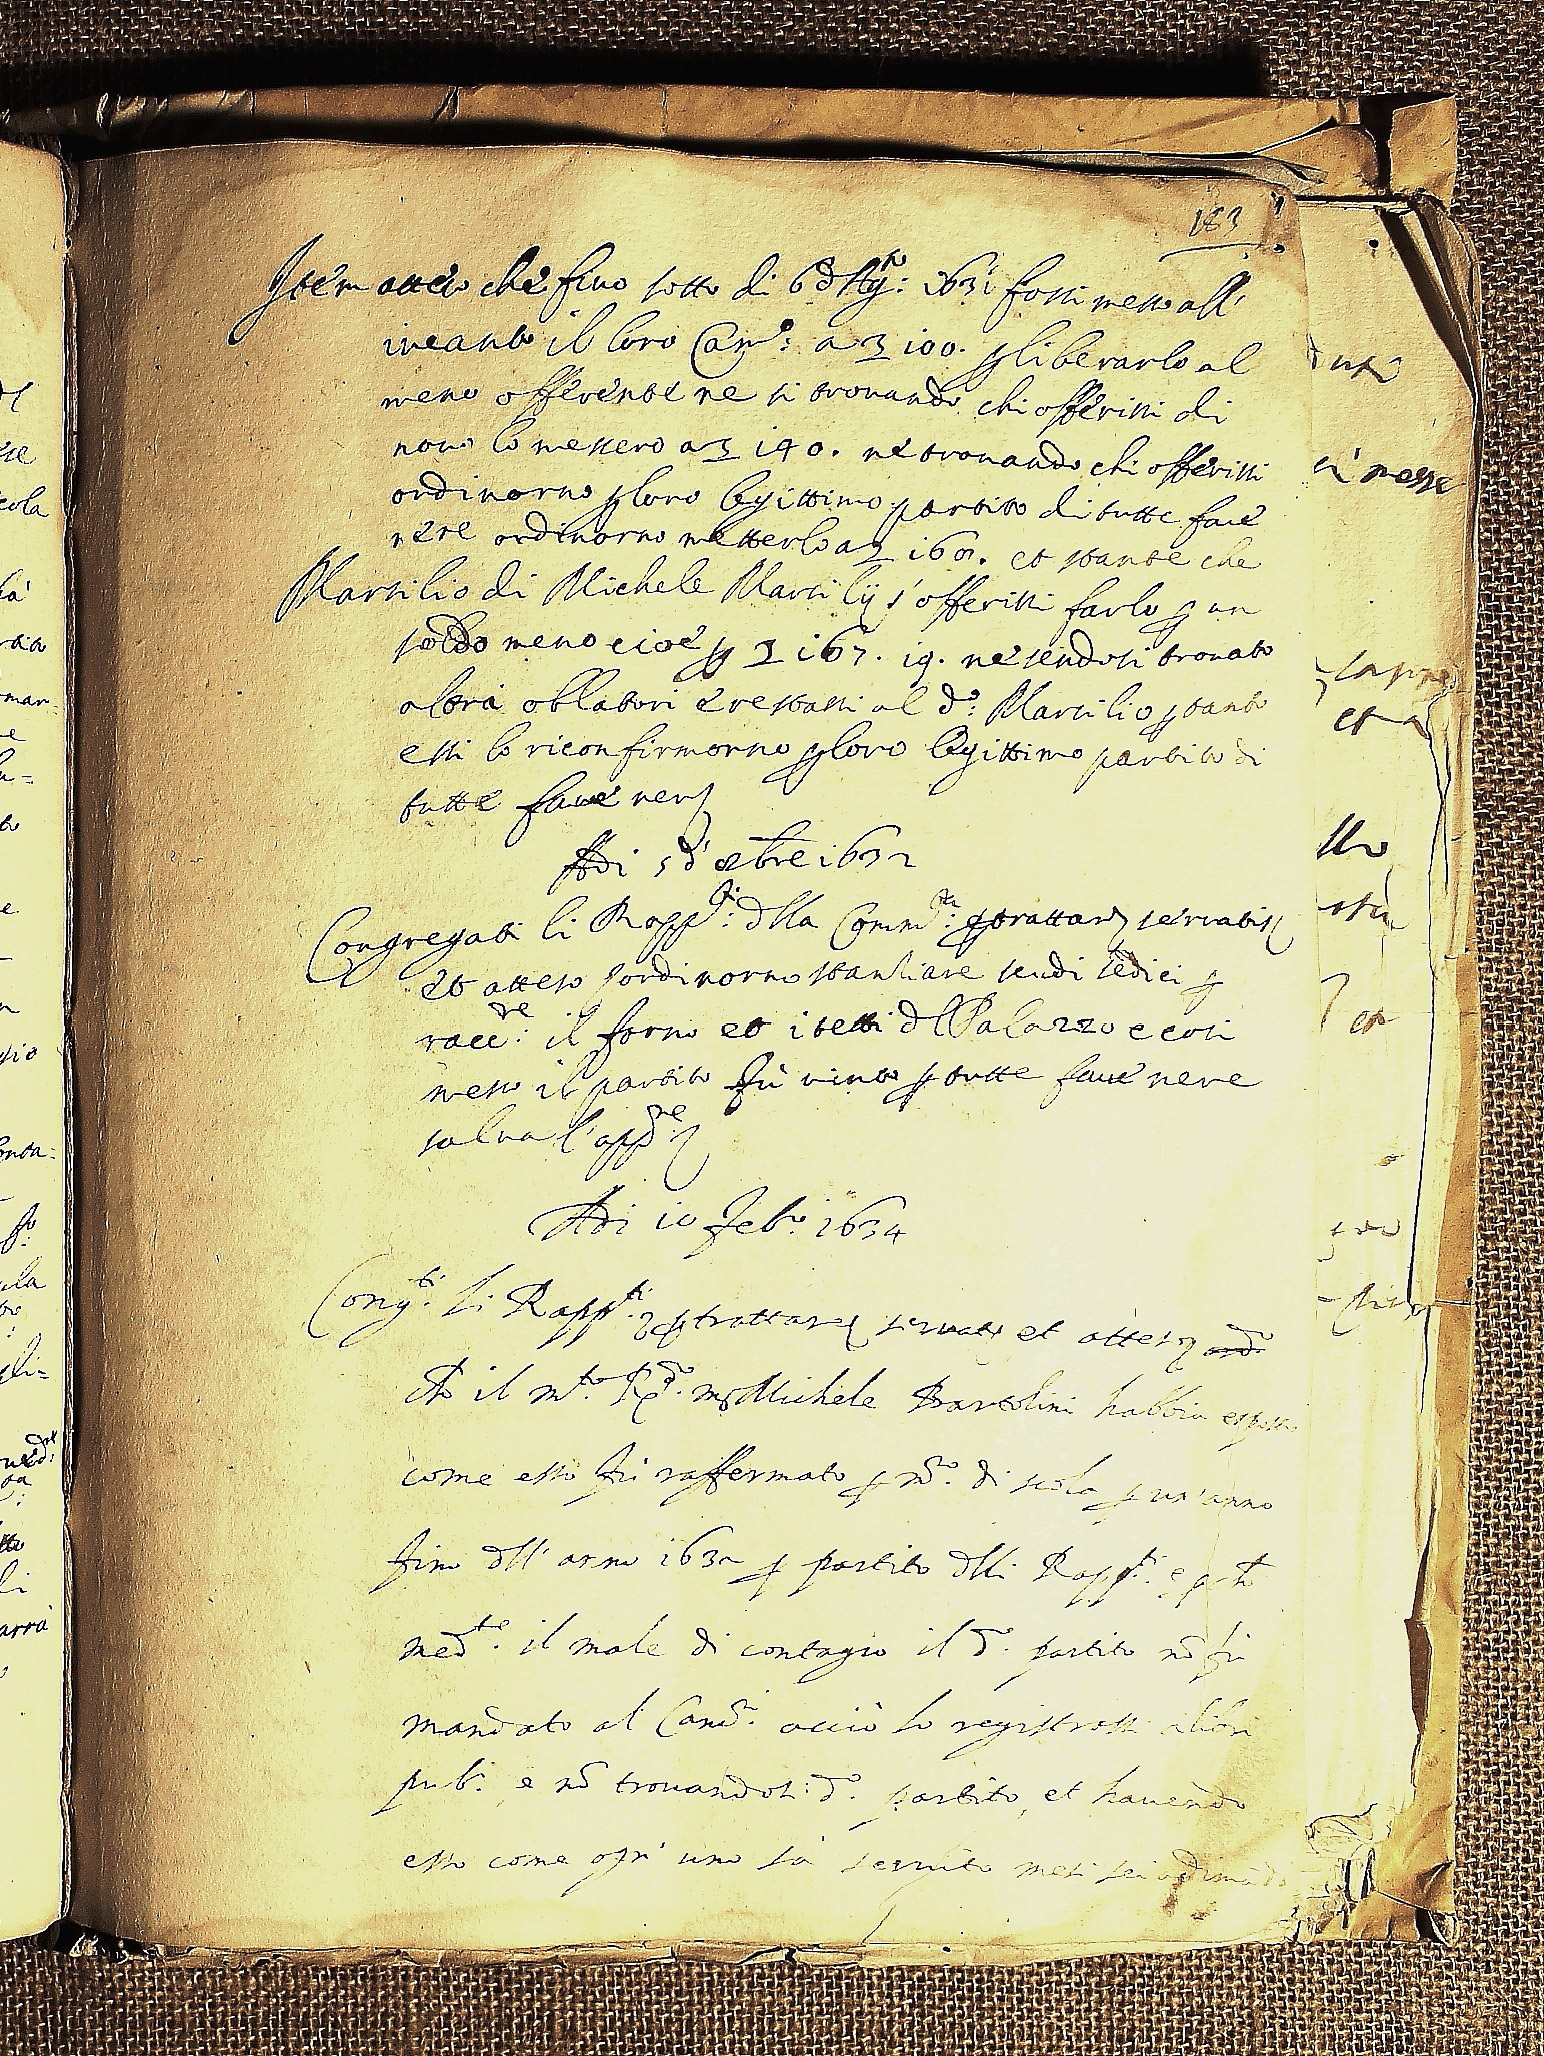 183
Item atteso che fino sotto di 6 d' Ag.to: 1631 fossi messo all'
incanto il loro Cam.o: a ʒ 100. p liberarlo al
meno offerente ne si trovando chi offerissi di
novo lo messero a ʒ 140. nè trovando chi offerissi
ordinorno p loro legittimo partito di tutte fave
nere ordinorno metterlo a ʒ 168. et stante che
Marsilio di Michele Marsilij s'offerissi farlo p un
soldo meno cioè p ʒ 167. 19. nè sendosi trovato
altri oblatori e restassi al d.o: Marsilio p tanto
essi lo riconfirmorno p loro legittimo partito di
tutte fave nere
Adi 5 d' 8bre 1632
Congregati li Rapp.ti: dlla Comm.tà: p trattare servatis
et atteso ordinorno stantiare scudi sedici p
racc.re: il forno et i tetti dl Palazzo e così
messo il partito fù vinto p tutte fave nere
salva l'app.ne
Adi 10 Feb.o 1634
Cong.ti: li Rapp.ti: p trattare servatis et atteso
che il m.to R.do: Michele Bartolini habbia esposto
come esso fù raffermato p m.ro di scola p un'anno
fino dll' anno 1632 p partito dlli Rapp.ti: e
med.te: il male di contagio il d.o: partito nō fù
mandato al Canc.re: acciò lo registrassi a libri
pub.ci e nō trovandosi: d.o: partito, et havendo
esso come ogn' uno sà servito mesi sei